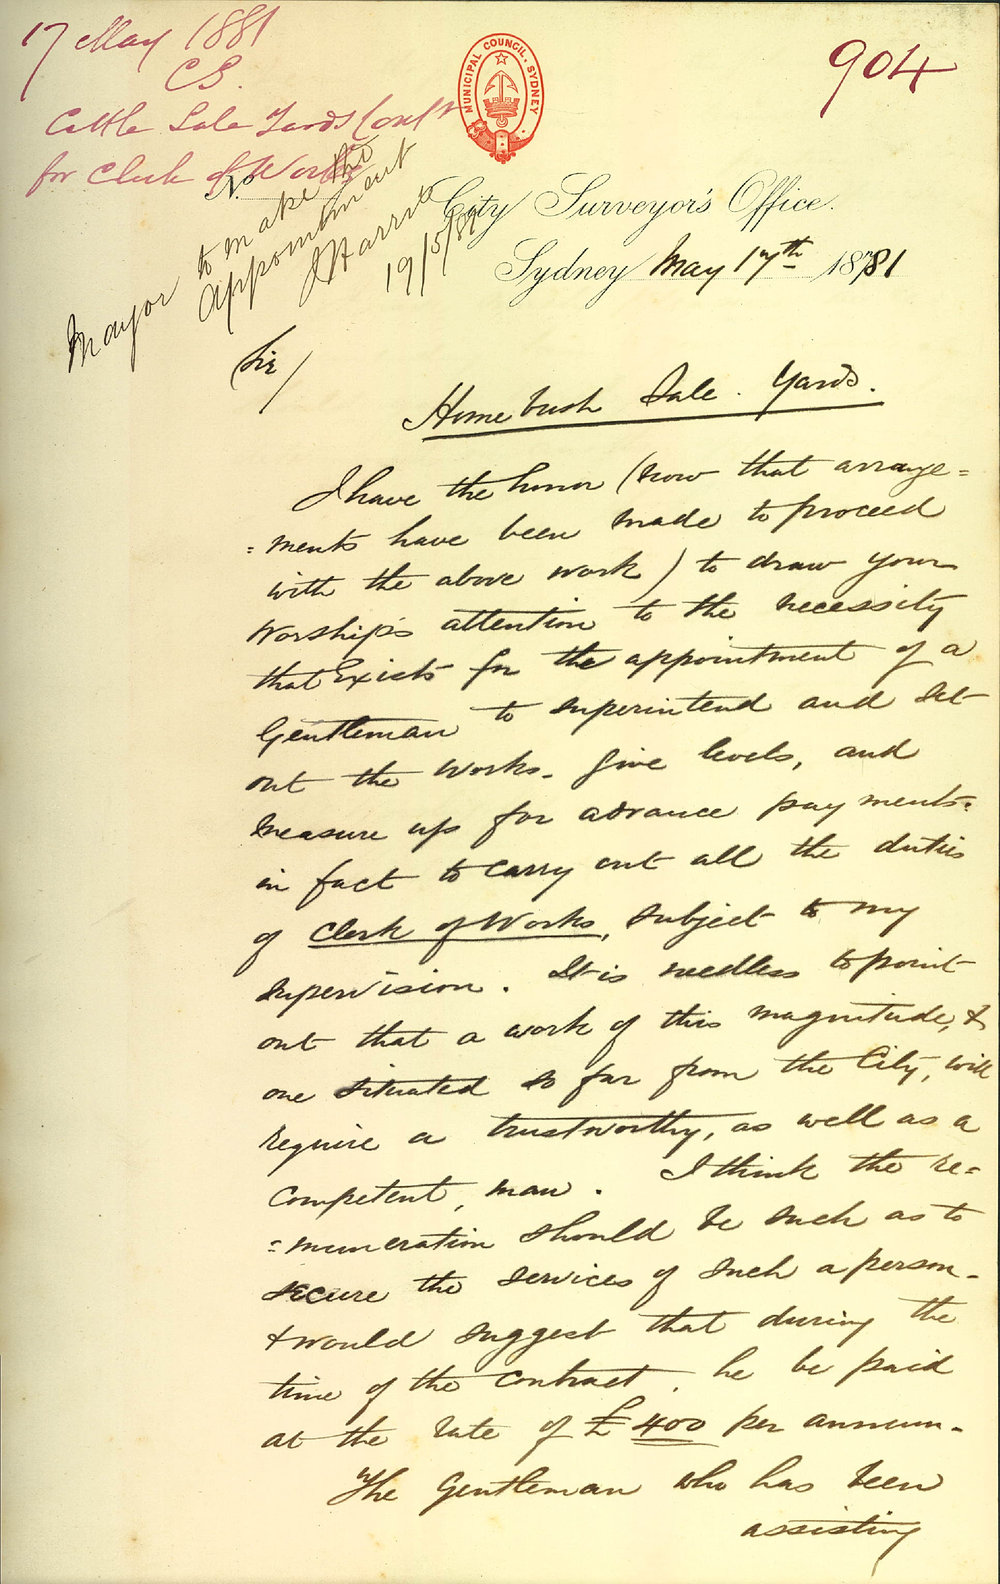 17 May 1881
CS.
Cattle Sale Yards Cont.
for Clerk of Works
904
MUNICIPAL COUNCIL. SYDNEY
Mayor to make the
appointment
J Harris
19/5/81
No.
City Surveyor's Office.
Sydney May 17th 1881
Sir/
Homebush Sale Yards.
I have the honor (now that arrange=
=ments have been made to proceed
with the above work) to draw your
Worship's attention to the necessity
that Exists for the appointment of a
Gentleman to superintend and set
out the works. give levels, and
measure up for advance payments.
in fact to carry out all the duties
of Clerk of Works, subject to my
supervision. It is needless to point
out that a work of this magnitude, &
one situated so far from the City, will
require a trustworthy, as well as a
competent, man. I think the re=
=muneration should be such as to
secure the services of such a person.
& would suggest that during the
time of the contract, he be paid
at the rate of £400 per annum.
The Gentleman who has been
assisting